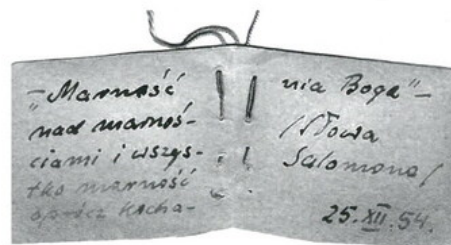 – Marność
„nad marnoś-
ciami i wszys-
tko marność
oprócz kocha-
nia Boga” –
/Słowa
Salomona/
25.XII.54.